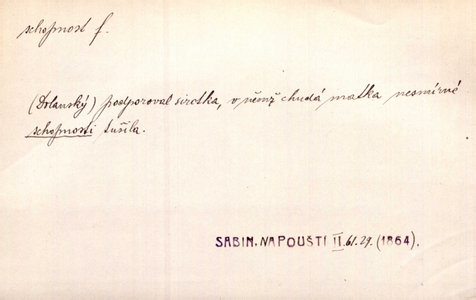 schopnost f.
(Dolanský) podporoval sirotka, v němž chudá matka nesmírné
schopnosti tušila.
SABIN. NA POUŠTI II. 61. 29. (1864).